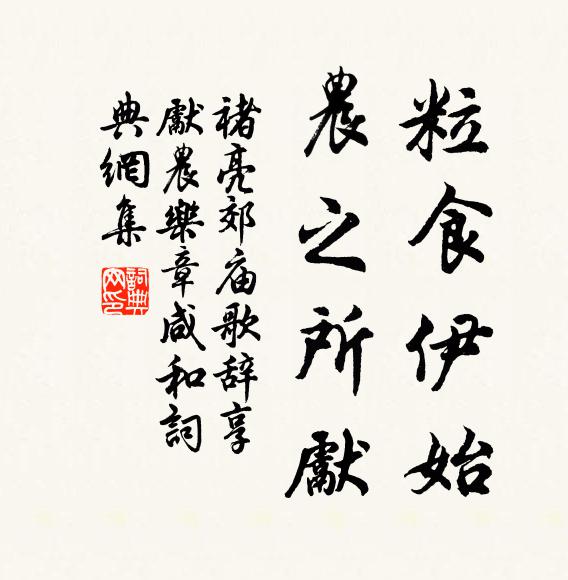 粒食伊始
農之所獻
褚亮郊庙歌辞享
獻農樂章咸和詞
典網集
詞典網印